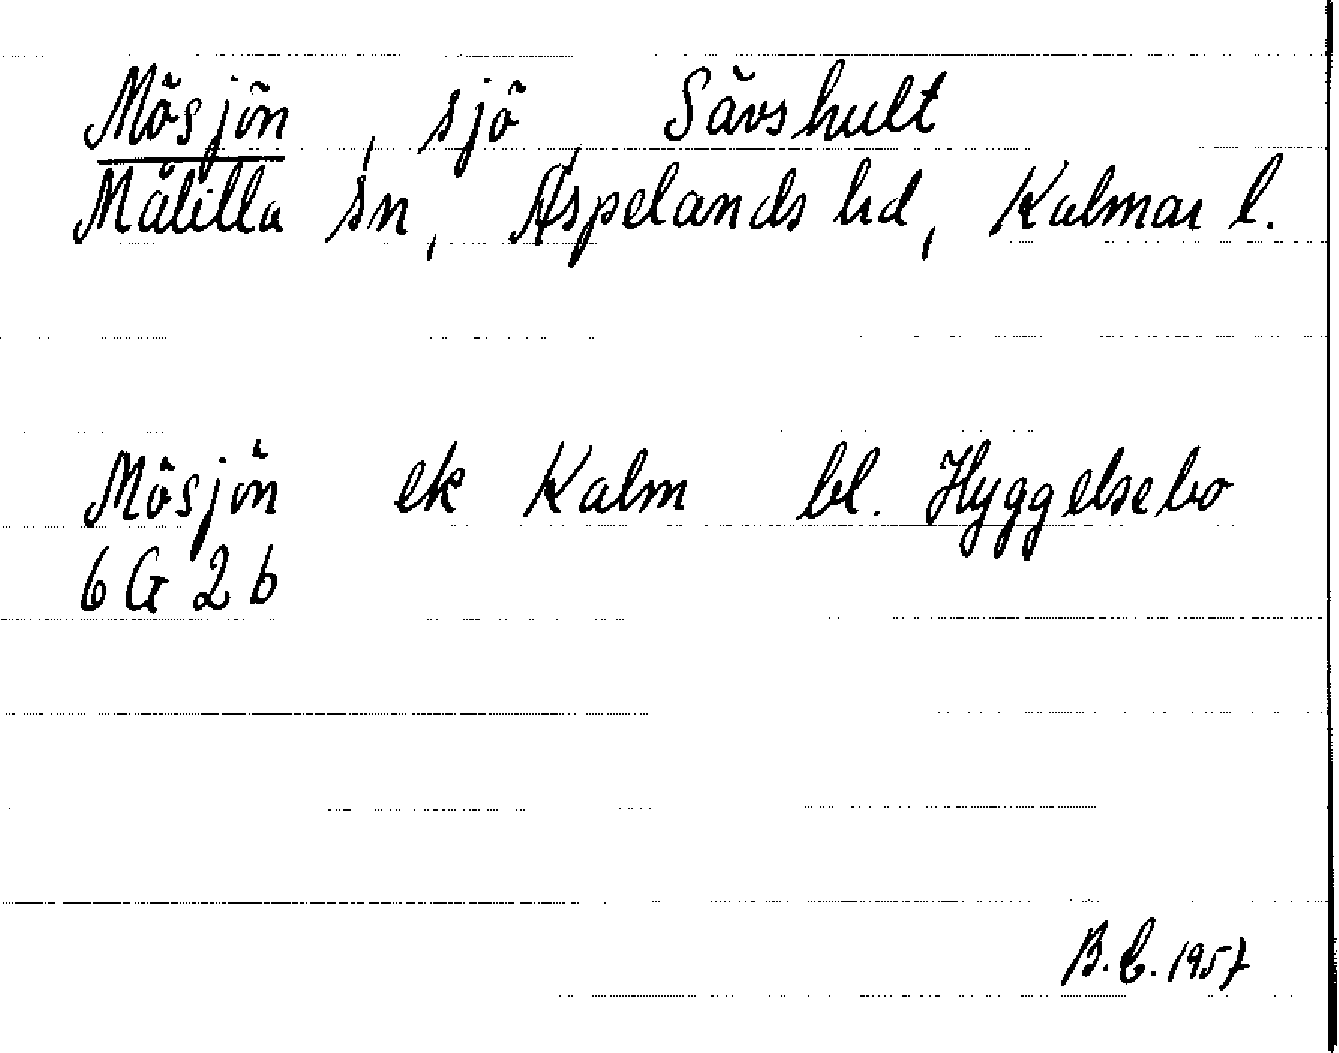 Mösjön, sjö Sävshult
Målilla sn, Aspelands hd, Kalmar l.
Mösjön ek Kalm bl. Hyggelsebo
6 G 2 b
B.E. 1957